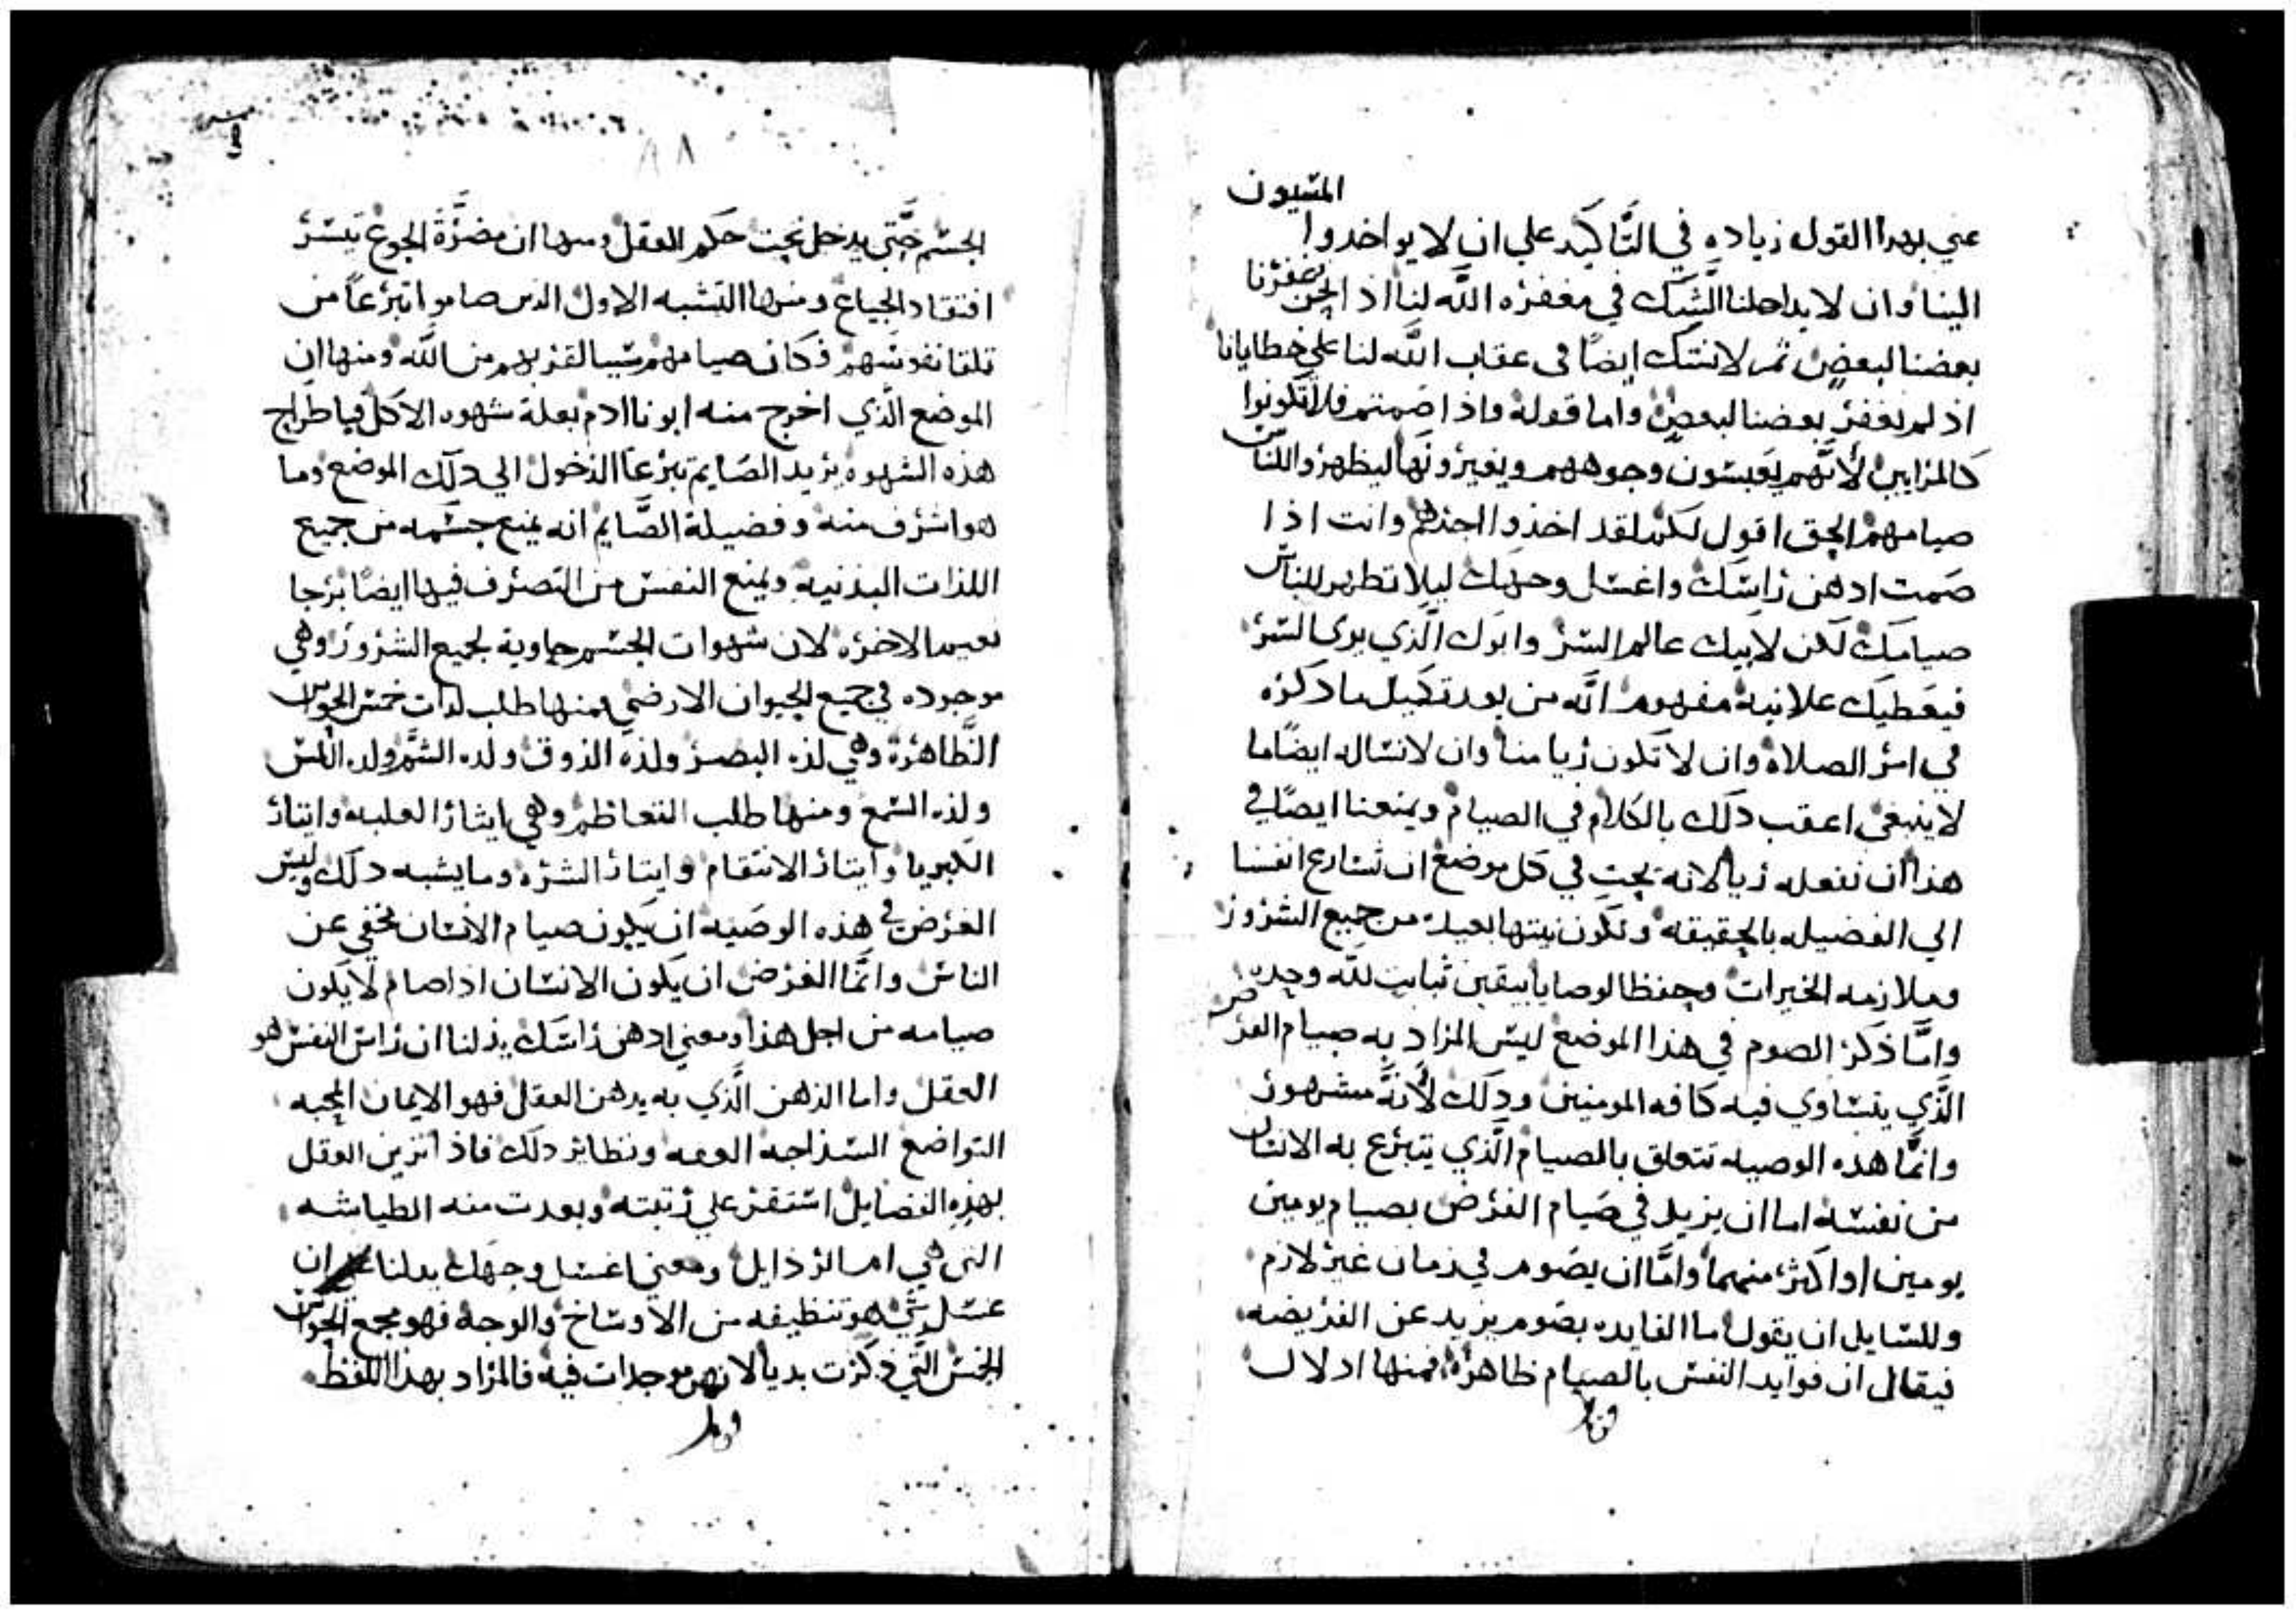 المسيون
عني بهدا القول زياده في التَّاكيد علي ان لا يواخدوا
الينا وان لا يداخلنا الشك في مغفره الله لنا اذا نحن غفرنا
بعضنا لبعض ثم لا نشك ايضًا فى عقاب الله لنا علي خطايانا
اذ لم نغفر بعضنا لبعض واما قوله واذا صمتم فلا تكونوا
كالمرايين لأنَّهم يعبسون وجوههم ويغيرونها ليظهروا للناس
صيامهم الحق اقول لكم لقد اخذوا اجرهم وانت اذا
صمت ادهن راسك واغسل وجهك ليلا تظهر للناس
صيامك لكن لابيك عالم السر وابوك الَّذي يرى السر
فيعطيك علانية مفهوم انَّه من بعد تكميل ما ذكره
في امر الصلاه وان لا تكون ريا منا وان لا نساله ايضًا ما
لا ينبغي اعقب دلك بالكلام في الصيام ويمنعنا ايضًا في
هذا ان نفعله ريا لانه يجب في كل موضع ان نسارع انفسنا
الي الفضيله بالحقيقه وتكون نيتها بعيده من جميع الشرور
وملازمه الخيرات وحفظ الوصايا بيقين ثابت للَّه وحده
وامَّا ذكر الصوم في هذا الموضع ليس المراد به صيام الفرض
الَّذي يتساوي فيه كافه المومنين ودلك لأنَّه مشهور
وانمَّا هده الوصيه تتعلق بالصيام الَّذي يتبرع به الانسان
من نفسه اما ان يزيد في صيام الفرض بصيام يومين
يومين او اكثر منهما وامَّا ان يصوم في زمان غير لازم
وللسايل ان يقول ما الفايده بصوم يزيد عن الفريضه
فيقال ان فوايد النفس بالصيام ظاهره فمنها ادلال
٨٨
الجسم حتَّى يدخل تحت حكم العقل ومنها ان مضرَّة الجوع تيسر
افتقاد الجياع ومنها التشبه الاول الدين صاموا تبرعاً من
تلقا نفوسهم فكان صيامهم سببا لقربهم من اللَّه ومنها ان
الموضع الَّذي اخرج منه ابونا ادم بعلة شهوه الاكل فباطراح
هذه الشهوه يريد الصايم تبرعاً الدخول الي دلك الموضع وما
هو اشرف منه وفضيلة الصَّايم انه يمنع جسمه من جميع
اللذات البدنيه ويمنع النفس من التصرف فيها ايضًا برجا
نعيم الاخره لان شهوات الجسم حاوية لجميع الشرور وهي
موجوده في جميع الحيوان الارضي فمنها طلب لدات خمس الحواس
الظَّاهرة وهي لذه البصر ولذه الذوق ولده الشم ولده اللمس
ولذه السمع ومنها طلب التعاظم وهي ايثار الغلبه وايتار
الكبريا وايتار الانتقام وايتار الشره وما يشبه دلك وليس
الغرض في هذه الوصيه ان يكون صيام الانسان مخفي عن
الناس وانَّما الغرض ان يكون الانسان اذا صام لا يكون
صيامه من اجل هذا ومعني ادهن راسك يدلنا ان راس النفس هو
العقل واما الدهن الَّذي به يدهن العقل فهو الايمان المحبه
التواضع السذاجه العفه ونظاير دلك فاذا تزين العقل
بهذه الفضايل استقر علي رتبته وبعدت منه الطياشه
التي هي ام الرذايل ومعني اغسل وجهك يدلنا ان
غسل شي هو تنظيفه من الاوساخ والوجه فهو مجمع الحواس
الخمس الَّتي ذكرت بديا لانهن موجدات فيه فالمراد بهذا اللفظ